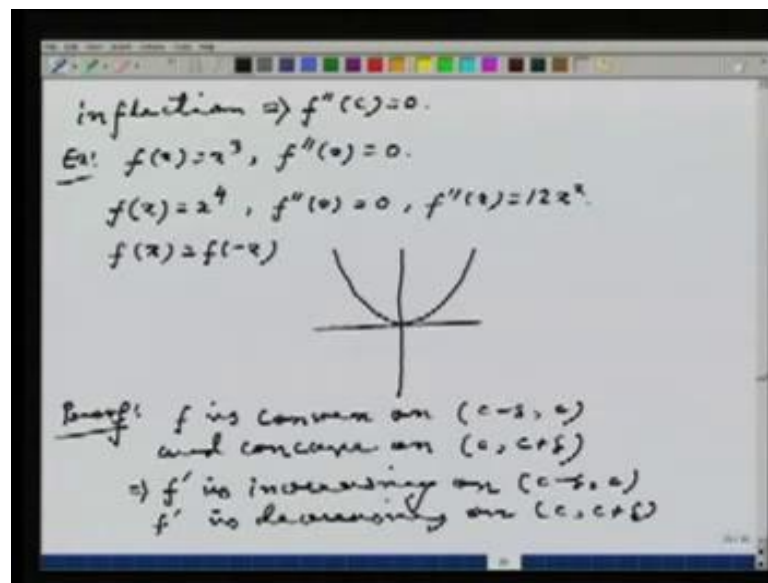 inflection ⇒ f''(c)=0.
Ex: f(x)=x³, f''(0)=0.
f(x)=x⁴, f''(0)=0, f''(x)=12x².
f(x)=f(-x)
Proof: f is convex on (c-δ, c)
and concave on (c, c+δ)
⇒ f' is increasing on (c-δ, c)
f' is decreasing on (c, c+δ)